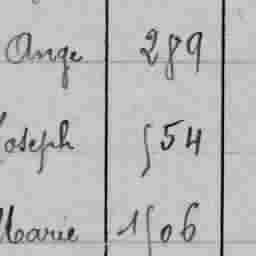 Ange 289
Joseph 554
Marie 1506